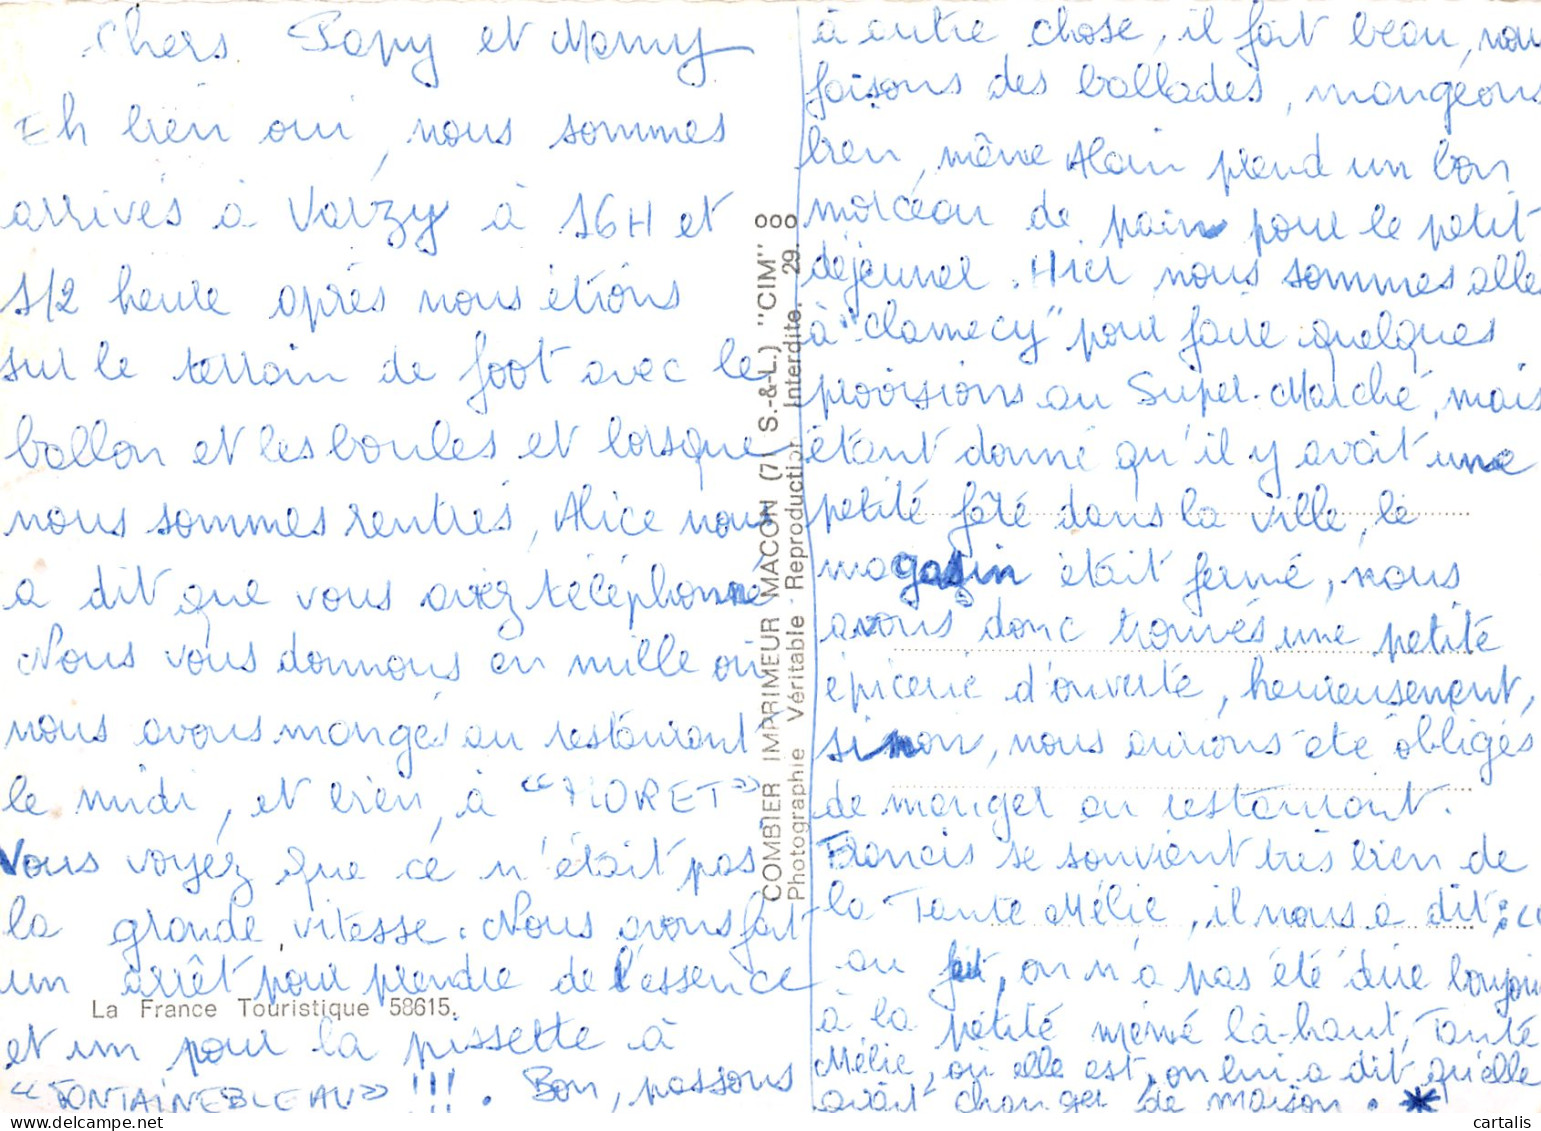 Chers Papy et Mamy
Eh bien oui, nous sommes
arrivés à Varzy à 16H et
1/2 heure après nous étions
sur le terrain de foot avec le
ballon et les boules et lorsque
nous sommes rentrés, Alice nous
a dit que vous aviez téléphonné
Nous vous donnons en mille où
nous avons mangés au restaurant
le midi, et bien, à "MORET"
Vous voyez que ce n'était pas
la grande vitesse. Nous avons fait
un arrêt pour prendre de l'essence
La France Touristique 58615.
et un pour la pissette à
"FONTAINEBLEAU" !!! . Bon, passons
COMBIER IMPRIMEUR MACON (71 S.-&-L.) "CIM"
Photographie Véritable - Reproduction Interdite. 29.
à autre chose, il fait beau, nous
faisons des ballades, mangeons
bien, même Alain prend un bon
morceau de pain pour le petit
déjeuner. Hier nous sommes allés
à "Clamecy" pour faire quelques
provisions au Super-Marché, mais
étant donné qu'il y avait une
petite fête dans la ville, le
magasin était fermé, nous
avons donc trouvés une petite
épicerie d'ouverte, heureusement,
sinon, nous aurions été obligés
de manger au restaurant.
Francis se souvient très bien de
la Tante Mélie, il nous a dit : "
au fait, on n'a pas été dire bonjour
à la petite mémé là-haut, Tante
Mélie, où elle est, on lui a dit qu'elle
avait changer de maison. *
cartalis